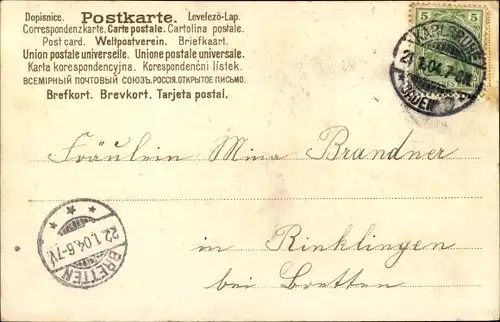 Dopisnice. Postkarte. Levelező-Lap.
Correspondenzkarte. Carte postale. Cartolina postale.
Post card. Weltpostverein. Briefkaart.
Union postale universelle. Unione postale universale.
Karta korespondencyjna. Korespondenční lístek.
ВСЕМІРНЫЙ ПОЧТОВЫЙ СОЮЗЪ. РОССІЯ. ОТКРЫТОЕ ПИСЬМО.
Brefkort. Brevkort. Tarjeta postal.
5 5
KARLSRUHE
BADEN
Fräulein Mina Brandner
in Rinklingen
bei Bretten
22.1.04.6-7V.
BRETTEN